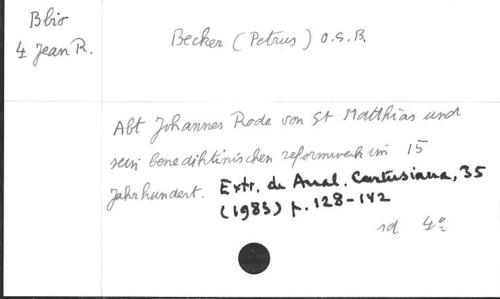 B bio
4 Jean R.
Becker (Petrus) O.S.B.
Abt Johannes Rode von St Matthias und
sein benediktinischen reformwerk im 15
Jahrhundert. Extr. de Anal. Cartusiana, 35
(1983) p. 128-142
sd 4°